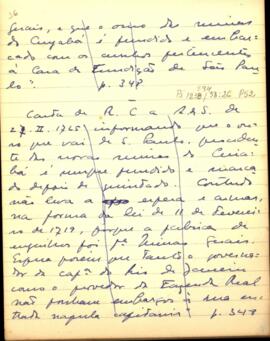 36
Gerais, e que o ouro de minas
de Cuyabá é fundido e embar-
cado com os cunhos pertencentes
á Casa de Fundição de São Pau-
lo". p. 348
P52
Carta de R. C a R. A. S. de
27. II. 1765 informando que o ou-
ro que vai de S. Paulo, proceden-
te das novas minas de Cuia-
bá é sempre fundido e marca
do depois de quintado. Contudo
não leva a espera e armas,
na forma da lei de 11 de Feverei-
ro de 1719, porque a fabrica de
engenhos foi pª Minas Gerais.
Espera porem que tanto o governa-
dor da capª do Rio de Janeiro
como o provedor da Fazenda Real
não ponham embargos á sua en-
trada naquela capitania" p. 348